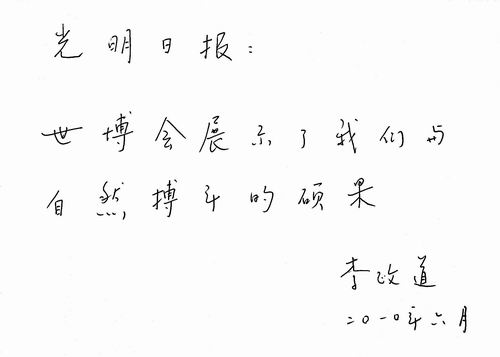 光明日报：
世博会展示了我们与
自然搏斗的硕果
李政道
二〇一〇年六月